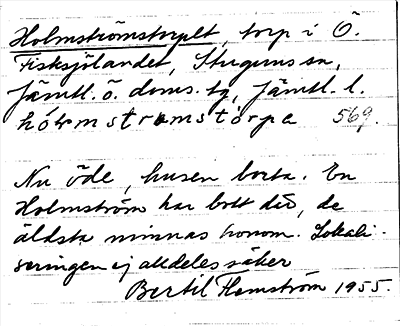 Holmströmstorpet, torp i Ö.
Fisksjölandet, Stuguns sn,
Jämtl. ö. doms. tg, Jämtl. l.
hólmstrømstòrpa 569.
Nu öde, husen borta. En
Holmström har bott där, de
äldsta minnas honom. Lokali-
seringen ej alldeles säker
Bertil Flemström 1955.